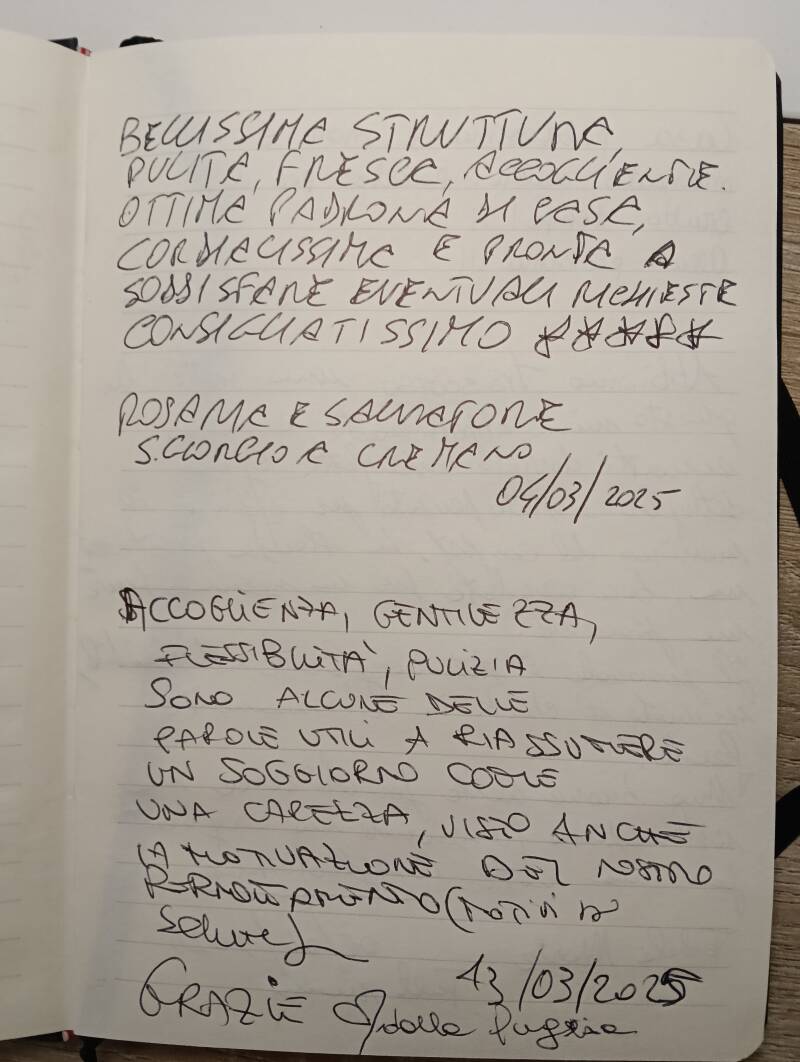 BELLISSIMA STRUTTURA,
PULITA, FRESCA, ACCOGLIENTE.
OTTIMA PADRONA DI CASA,
CORDIALISSIMA E PRONTA A
SODDISFARE EVENTUALI RICHIESTE
CONSIGLIATISSIMO *****
ROSARIA E SALVATORE
S. GIORGIO A CREMANO
04/03/2025
ACCOGLIENZA, GENTILEZZA,
FLESSIBILITÀ, PULIZIA
SONO ALCUNE DELLE
PAROLE UTILI A RIASSUMERE
UN SOGGIORNO COME
UNA CAREZZA, VISTO ANCHE
LA MOTIVAZIONE DEL NOSTRO
PERNOTTAMENTO (MOTIVI DI
salute)
13/03/2025
GRAZIE dalla Puglia